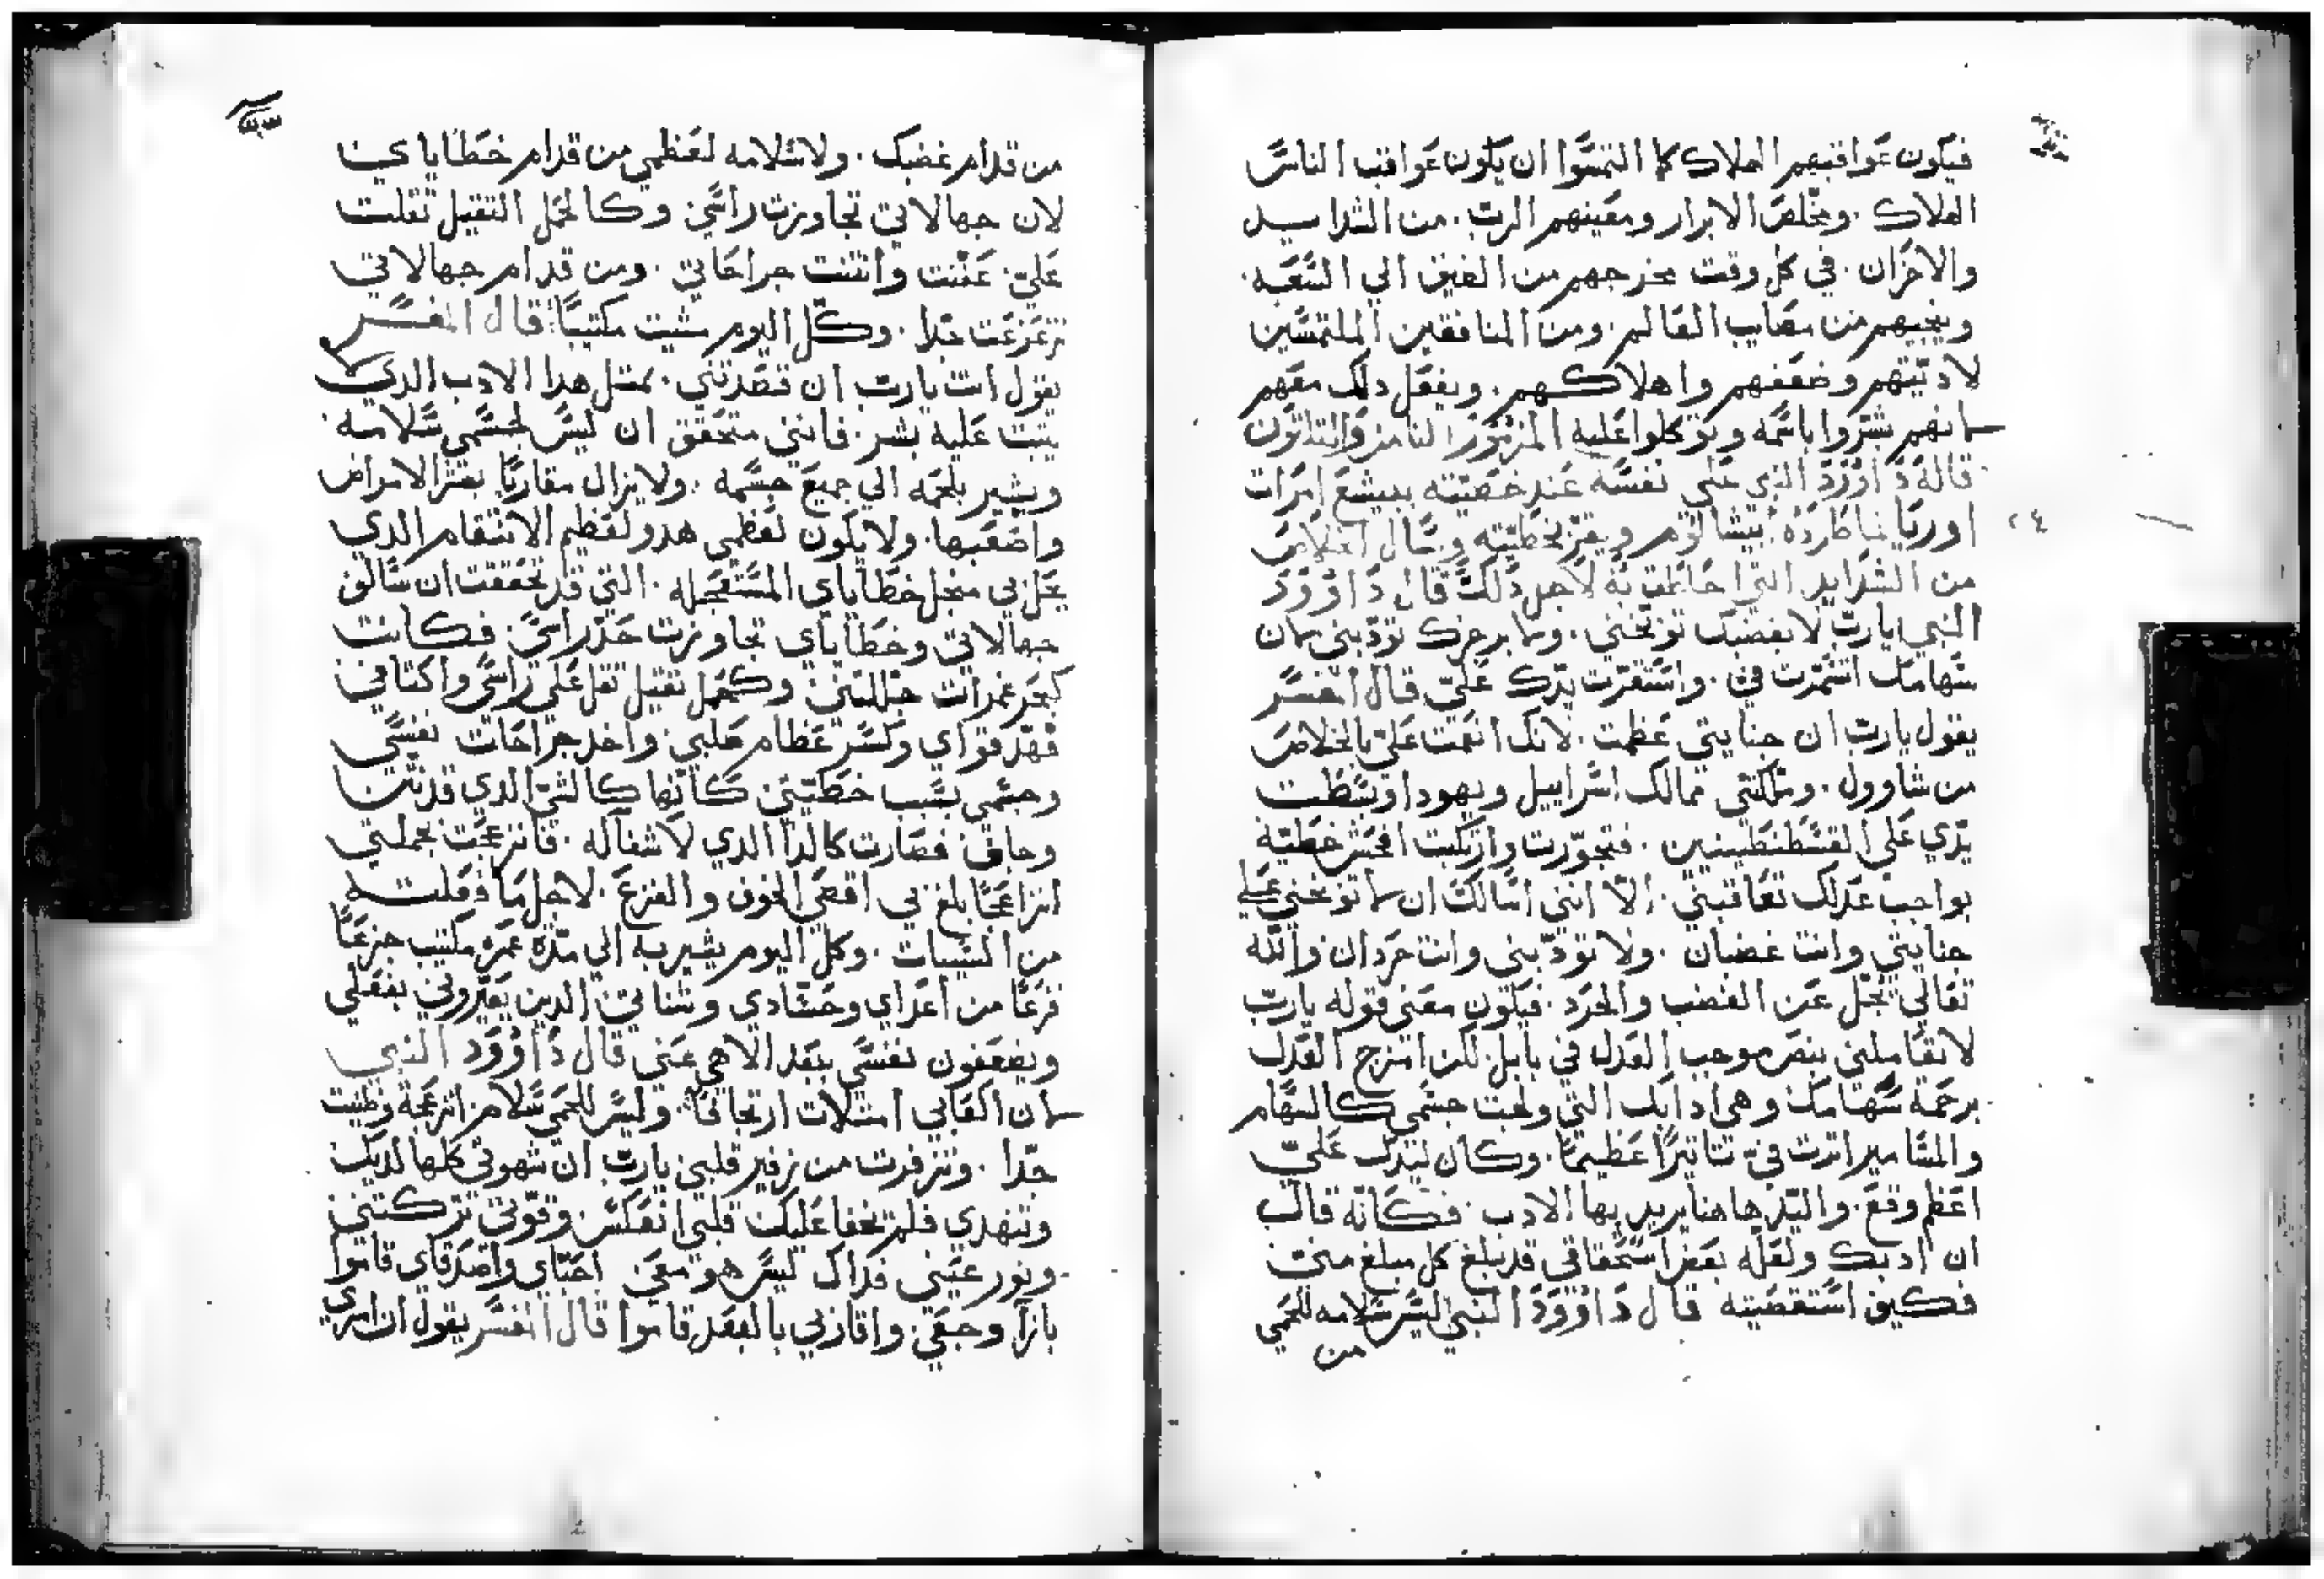 فيكون عواقبهم الهلاك كما التمسوا ان يكون عواقب الناس
الهلاك . ومخلص الابرار ومعينهم الرب . من الشدايد
والاحزان . في كل وقت مخرجهم من الضيق الي السعه .
وينجيهم من مصايب العالم . ومن المنافقين الملتمسين
لاديتهم وضعفهم واهلاكهم . ويفعل دلك معهم
لانهم بشروا باسمه وتوكلوا عليه المزمور الثامن والثلاثون
قاله داوود النبي على نفسه عند خطيته ببيشع امرات
اوريا لما طرده ابيشالوم ويقر بخطيته ويسال الخلاص
من الشدايد التي احاطت به لاجل دلك قال داوود
النبي يارب لا بغضبك توبخني . ولا برجزك تودبني لان
سهامك انتمرت في . واستقرت يدك علي قال المفسر
يقول يارب ان جنايتي عظمت . لانك انعمت علي بالخلاص
من شاوول . وملكتني ممالك اسراييل ويهودا وبسطت
يدي على الفسطنطينين . فتجورت وارتكبت افحش خطيه
بواجب عدلك تعاقبني . الا انني اسالك ان لا توبخني علي
جنايتي وانت غضبان . ولا تودبني وانت حردان والله
تعالي يجل عن الغضب والحرد . فيكون معنى قوله يارب
لا تعاملني بنص موجب العدل في بابل لكن امزج العدل
برحمه سهامك وهي ادابك التي ولجت جسمي كالسهام
والمسامير اثرت في تتاتيرا عظيما . وكان ليدك علي
اعظم وقع . واليد هاهنا يريد بها الادب . فكانه قال
ان ادبك ولعله بعض استحقاقي قد بلغ كل مبلغ مني
فكيف استقصيته قال داوود النبي ليس سلامه للحمي
من
من قدام غضبك . ولا سلامه لعظمي من قدام خطاياي
لان جهالاتي تجاوزت راسي وكالحمل التقيل تقلت
علي . عفنت وانتنت جراحاتي . ومن قدام جهالاتي
تزعزعت جدا . وكل اليوم مشيت مكتيبا قال المفسر
يقول انت يارب ان قصدتني . بمتل هدا الادب الدي لا
يتبت عليه بشر . فانني متحقق ان ليس لجسمي سلامه
ويشير بلحمه الي جميع جسمه . ولا يزال مقاربا بشر الامراض
واصعبها . ولا يكون لعظمي هدو لعظيم الانتقام الدي
يحل بي منجل خطاياي المستعجله . التي قد تحققت ان سالف
جهالاتي وخطاياي تجاوزت حد راسي . فكانت
كبحر غمرات جللتني وكحمل تقيل تقل على راسي واكتافي
فهد قواي وكسر عظام صلبي . واخد جراحات نفسي
وجسمي بسبب خطيتي كانها كالشي الدي قد نتن
وجاف فصارت كالدا الدي لا شفا له . فانزعجت بجملتي
انزعاجا بلغ بي اقصي الخوف والفزع . لاجل ما فعلت
من السيات . وكل اليوم يشير به الي مدة عمره مكتيب جزعا
فزعا من اعداي وحسادي وشناتي الدين يعيروني بفعلي
ويضعفون نفسي ببعد الاهي عني قال داوود النبي
لان العابي امتلات ارتجافا . وليس للحمي سلام انزعجت وطيت
جدا . وتزفرت من زفير قلبي يارب ان شهوتي كلها لديك
وتنهدي فلم تخفا عليك قلبي انعكس وقوتي تركتني
ونور عيني فداك ليس هو معي احباي واصدقاي قاموا
بازا وجعي . واقاربي بالبعد قاموا قال المفسر يقول ان امري